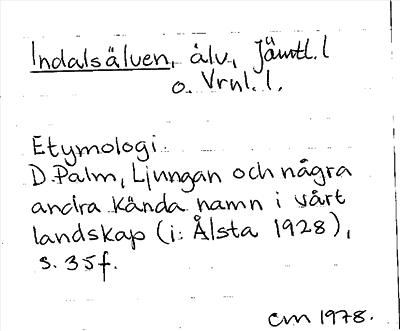 Indalsälven, älv, Jämtl. l
o. Vrnl. l.
Etymologi:
D. Palm, Ljungan och några
andra kända namn i vårt
landskap (i: Ålsta 1928),
s. 35f.
cm 1978.